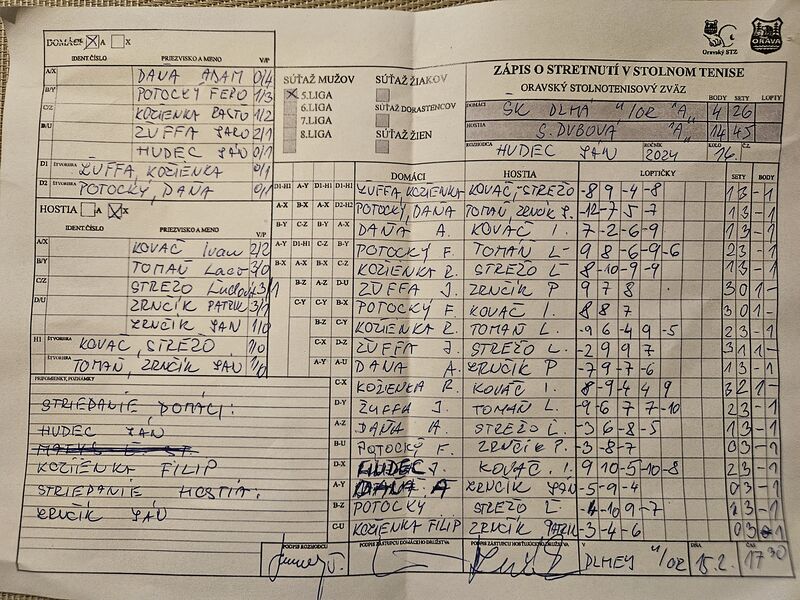 Oravský STZ
ORAVA
DOMÁCI A X
IDENT ČÍSLO PRIEZVISKO A MENO V/P
A/X DAŇA ADAM 0/4
B/Y POTOCKÝ FERO 1/3
C/Z KOZIENKA RASŤO 1/2
D/U ŽUFFA JARO 2/1
HUDEC JÁN 0/1
D1 ŠTVORHRA ŽUFFA, KOZIENKA 0/1
D2 ŠTVORHRA POTOCKÝ, DAŇA 0/1
HOSTIA A X
IDENT ČÍSLO PRIEZVISKO A MENO V/P
A/X KOVÁČ Ivan 2/2
B/Y TOMAŇ Laco 3/0
C/Z STREŽO Ľudov. 3/1
D/U ZRNČÍK PATRIK 3/1
ZRNČÍK JÁN 1/0
H1 ŠTVORHRA KOVÁČ, STREŽO 1/0
ŠTVORHRA TOMAŇ, ZRNČÍK JÁN 1/0
PRIPOMIENKY, POZNÁMKY
STRIEDANIE DOMÁCI:
HUDEC JÁN
KOZIENKA FILIP
STRIEDANIE HOSTIA:
ZRNČÍK JÁN
SÚŤAŽ MUŽOV
5.LIGA
6.LIGA
7.LIGA
8.LIGA
SÚŤAŽ ŽIAKOV
SÚŤAŽ DORASTENCOV
SÚŤAŽ ŽIEN
ZÁPIS O STRETNUTÍ V STOLNOM TENISE
ORAVSKÝ STOLNOTENISOVÝ ZVÄZ
BODY SETY LOPTY
DOMÁCI ŠK DLHÁ n/OR "A" 4 26
HOSTIA S. DUBOVÁ "A" 14 45
ROZHODCA HUDEC JÁN ROČNÍK 2024 KOLO 14. Č.
DOMÁCI HOSTIA LOPTIČKY SETY BODY
D1-H1 A-Y D1-H1 D1-H1 ŽUFFA, KOZIENKA KOVÁČ, STREŽO -8 9 -4 -8 13 -1
A-X B-X A-X D2-H2 POTOCKÝ, DAŇA TOMAŇ, ZRNČÍK J. -12 -7 5 -7 13 -1
B-Y C-Z B-Y A-X DAŇA A. KOVÁČ I. 7 -2 -6 -9 13 -1
A-Y D1-H1 C-Z B-Y POTOCKÝ F. TOMAŇ L. 9 8 -6 -9 -6 23 -1
B-X A-X B-X C-Z KOZIENKA R. STREŽO Ľ. -8 -10 -9 13 -1
B-Z A-Z D-U ŽUFFA J. ZRNČÍK P 9 7 8 30 1-
C-Y C-Y B-X POTOCKÝ F. KOVÁČ I. 8 8 7 30 1-
B-Z C-Y KOZIENKA R. TOMAŇ L. -9 6 -4 9 -5 23 -1
C-X D-Z ŽUFFA J. STREŽO L. -2 9 9 7 31 1-
A-Y A-U DAŇA A. ZRNČÍK P -7 9 -7 -6 13 -1
C-X KOZIENKA R. KOVÁČ I. 8 -9 -4 4 9 32 1-
D-Y ŽUFFA J. TOMAŇ L. -9 -6 7 7 -10 23 -1
A-Z DAŇA A. STREŽO Ľ. -3 6 -8 -5 13 -1
B-U POTOCKÝ F. ZRNČÍK P. -3 -8 -7 03 -1
D-X HUDEC J. KOVÁČ I. 9 10 -5 -10 -8 23 -1
A-Y DAŇA A ZRNČÍK JÁN -5 -9 -4 03 -1
B-Z POTOCKÝ STREŽO Ľ 13 -1
C-U KOZIENKA FILIP ZRNČÍK PATRIK -3 -4 -6 03 -1
PODPIS ROZHODCU
PODPIS ZÁSTUPCU DOMÁCEHO DRUŽSTVA
PODPIS ZÁSTUPCU HOSŤUJÚCEHO DRUŽSTVA
V DLHEJ n/OR DŇA 15.2. ČAS 17 30